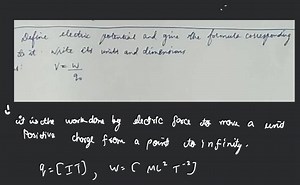 Define electric potential and give the formula corresponding
to it. Write its units and dimensions
V = W
q₀
it is the workdone by electric force to move a unit
Positive charge from a point to infinity.
q = [IT] , W = [ML² T⁻²]